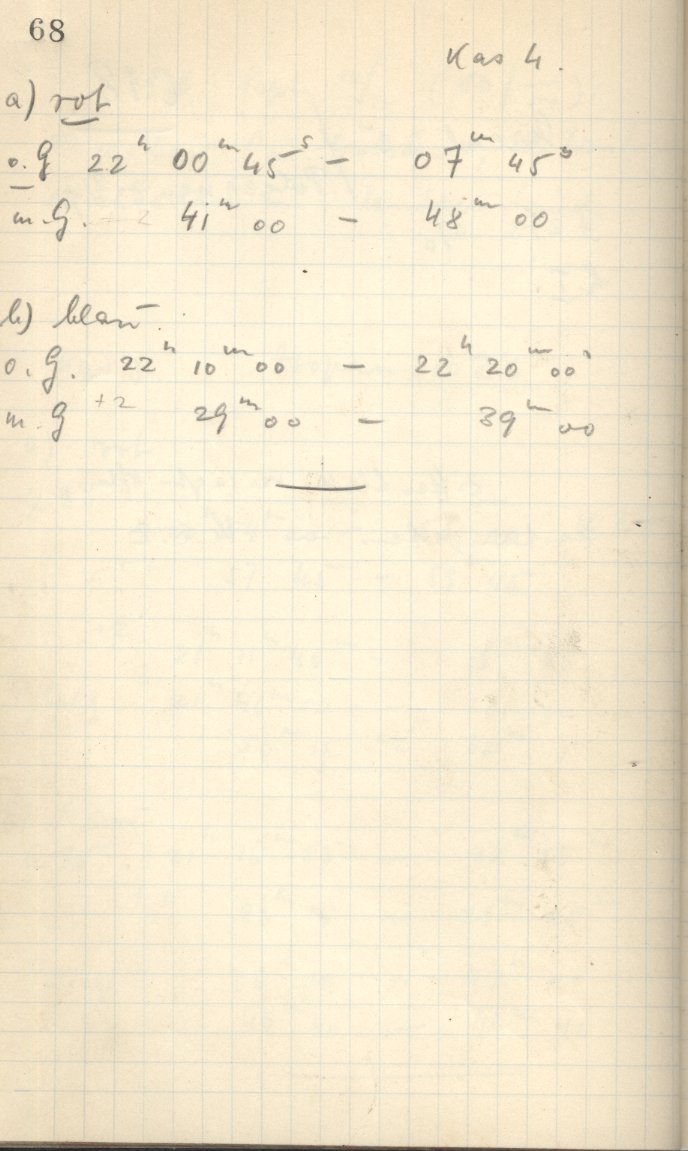 68
Kas 4.
a) rot
o. G 22h 00m 45s — 07m 45s
m. G. +2 41m 00 — 48m 00
b) blau.
o. G. 22h 10m 00 — 22h 20m 00s
m. G +2 29m 00 — 39m 00